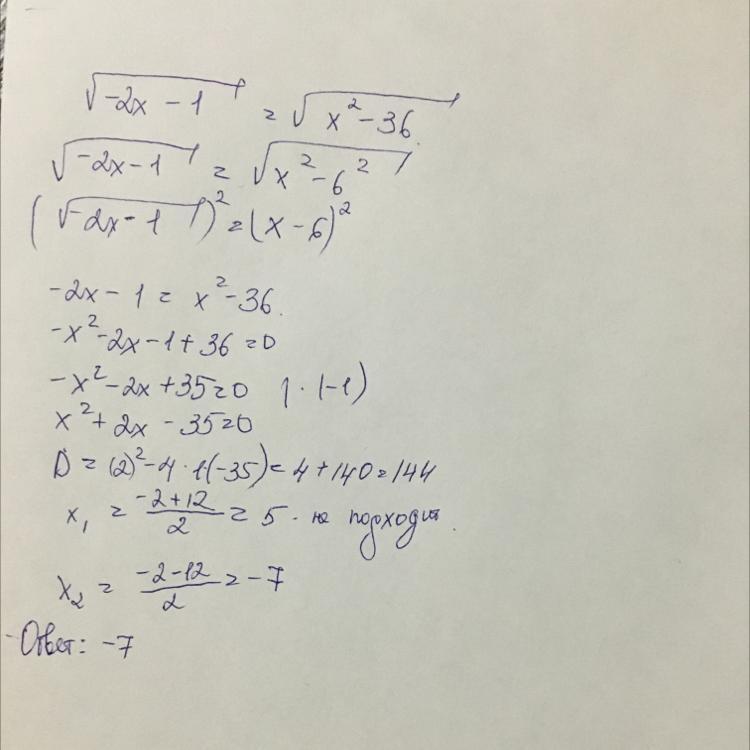 √(-2x - 1) = √(x² - 36)
√(-2x - 1) = √(x² - 6²)
(√(-2x - 1))² = (x - 6)²
-2x - 1 = x² - 36.
-x² - 2x - 1 + 36 = 0
-x² - 2x + 35 = 0 | · (-1)
x² + 2x - 35 = 0
D = (2)² - 4 · 1(-35) = 4 + 140 = 144
x₁ = (-2 + 12)/2 = 5 - не подходит.
x₂ = (-2 - 12)/2 = -7
Ответ: -7